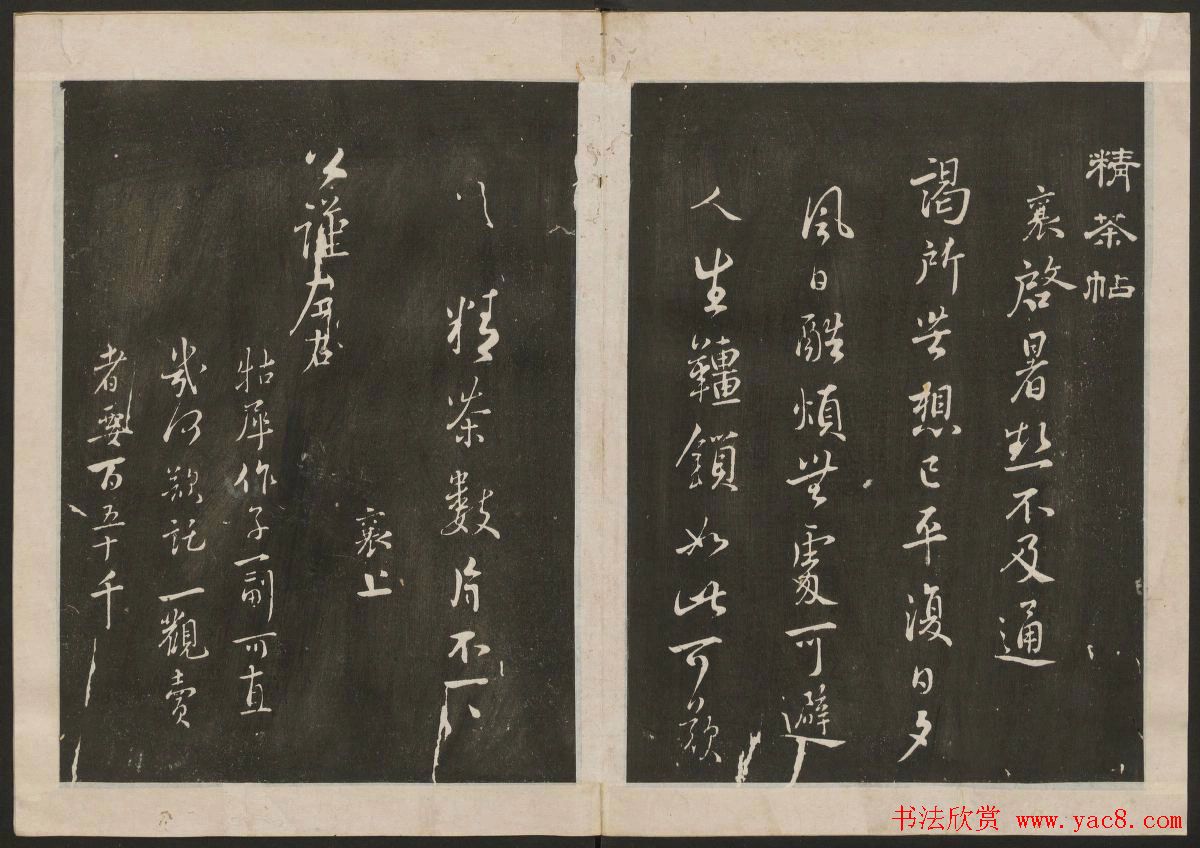 精茶帖
襄啓暑熱不及通
謁所苦想已平復日夕
風日酷煩無處可避
人生韁鎖如此可歎
精茶數片不一一
襄上
公謹左右
牯犀作子一副可直
幾何欲託一觀賣
者要百五十千
书法欣赏 www.yac8.com